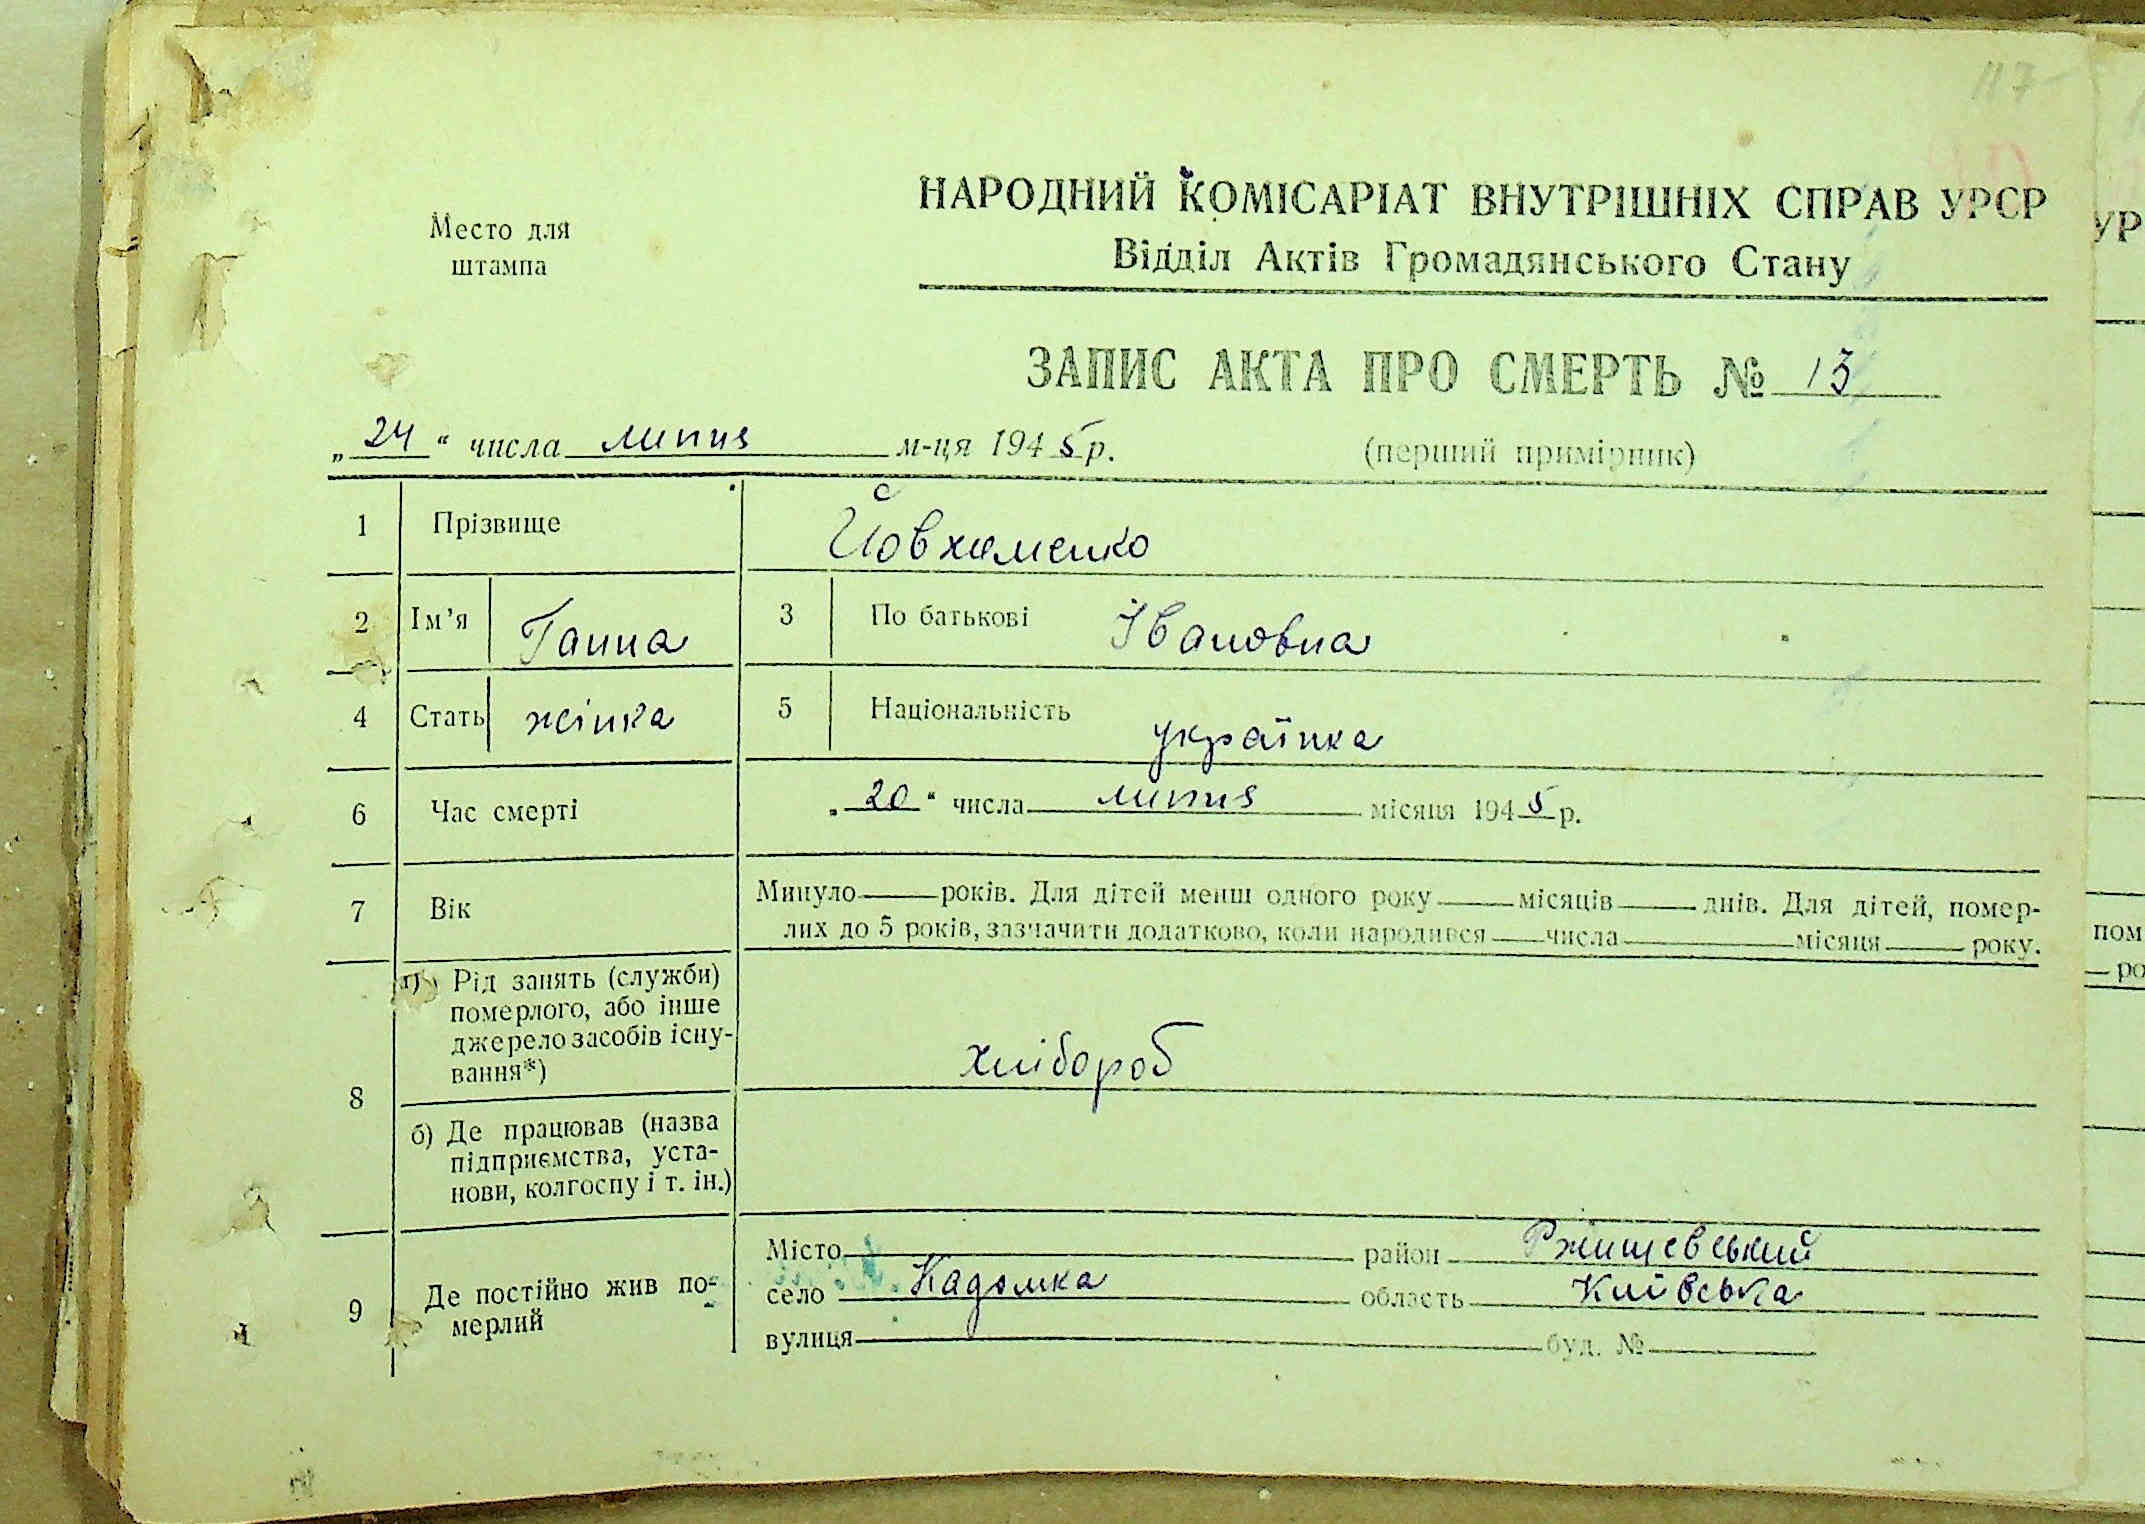 117
Место для
штампа
НАРОДНИЙ КОМІСАРІАТ ВНУТРІШНІХ СПРАВ УРСР
Відділ Актів Громадянського Стану
ЗАПИС АКТА ПРО СМЕРТЬ № 13
„24“ числа липня м-ця 1945 р.
(перший примірник)
1 Прізвище Йовхименко
2 Ім'я Ганна 3 По батькові Івановна
4 Стать жінка 5 Національність українка
6 Час смерті „20“ числа липня місяця 1945 р.
7 Вік Минуло — років. Для дітей менш одного року — місяців — днів. Для дітей, помер-
лих до 5 років, зазначити додатково, коли народився — числа — місяця — року.
8 а) Рід занять (служби)
померлого, або інше
джерело засобів існу-
вання*) хлібороб
б) Де працював (назва
підприємства, уста-
нови, колгоспу і т. ін.)
9 Де постійно жив по-
мерлий
Місто район Ржищевський
село Кадомка область Київська
вулиця буд. №
УР
пом
ро